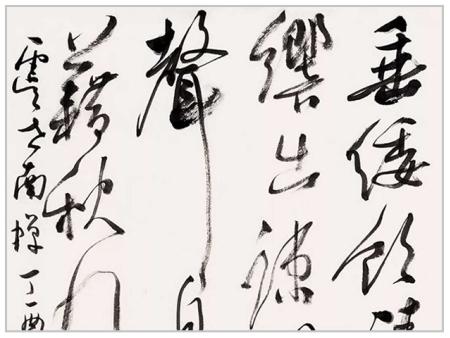 垂緌飲
響出疎
聲自
藉秋風
虞世南蟬丁酉